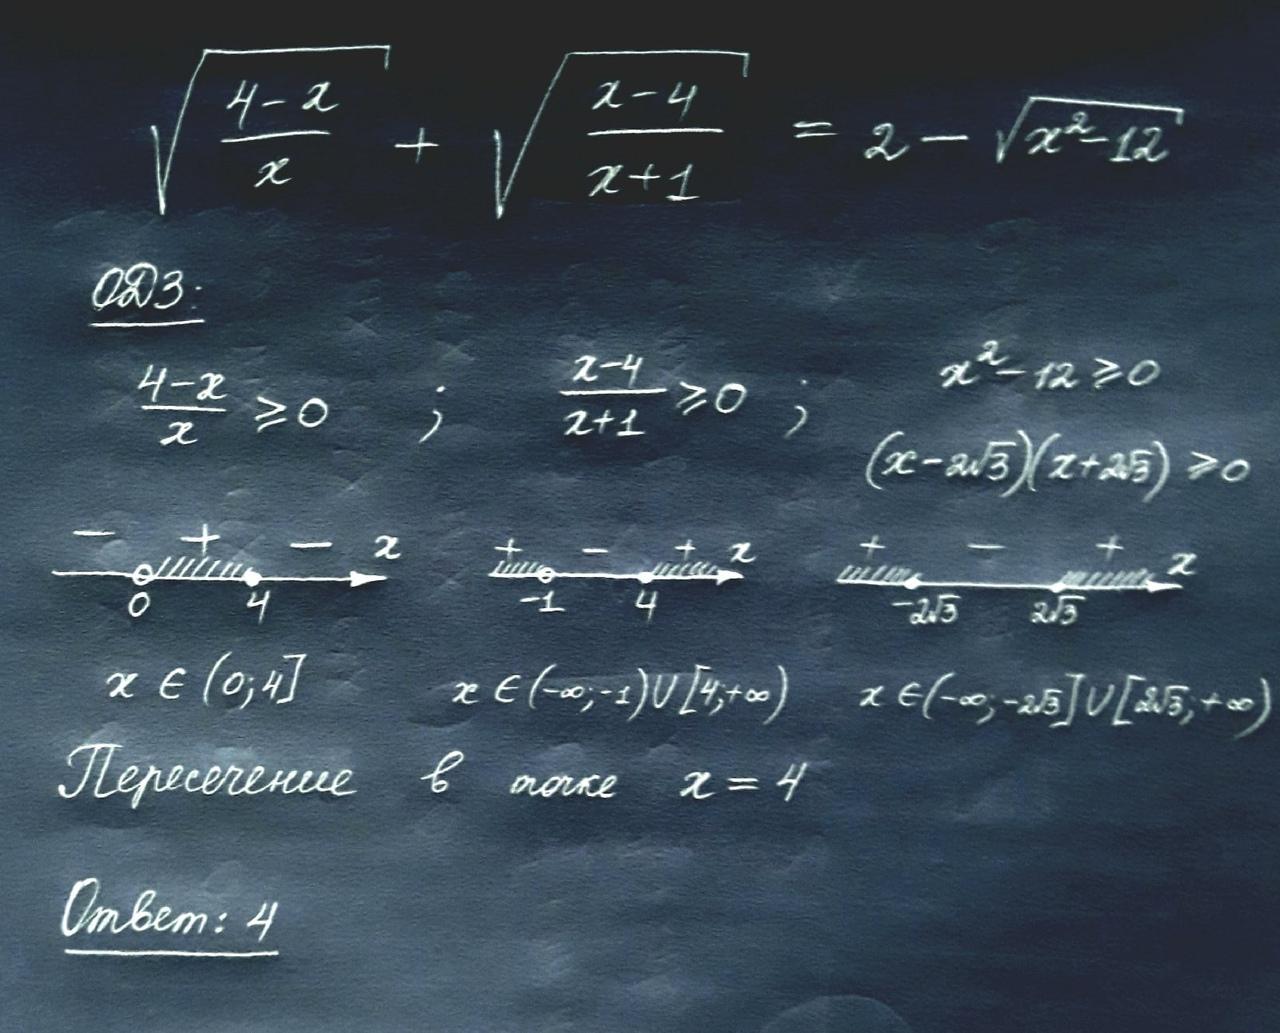 √((4-x)/x) + √((x-4)/(x+1)) = 2 - √(x²-12)
ОДЗ:
(4-x)/x ≥ 0 ; (x-4)/(x+1) ≥ 0 ; x²-12 ≥ 0
(x-2√3)(x+2√3) ≥ 0
- + - x + - + x + - + x
0 4 -1 4 -2√3 2√3
x ∈ (0; 4] x ∈ (-∞; -1) ∪ [4; +∞) x ∈ (-∞; -2√3] ∪ [2√3; +∞)
Пересечение в точке x = 4
Ответ: 4